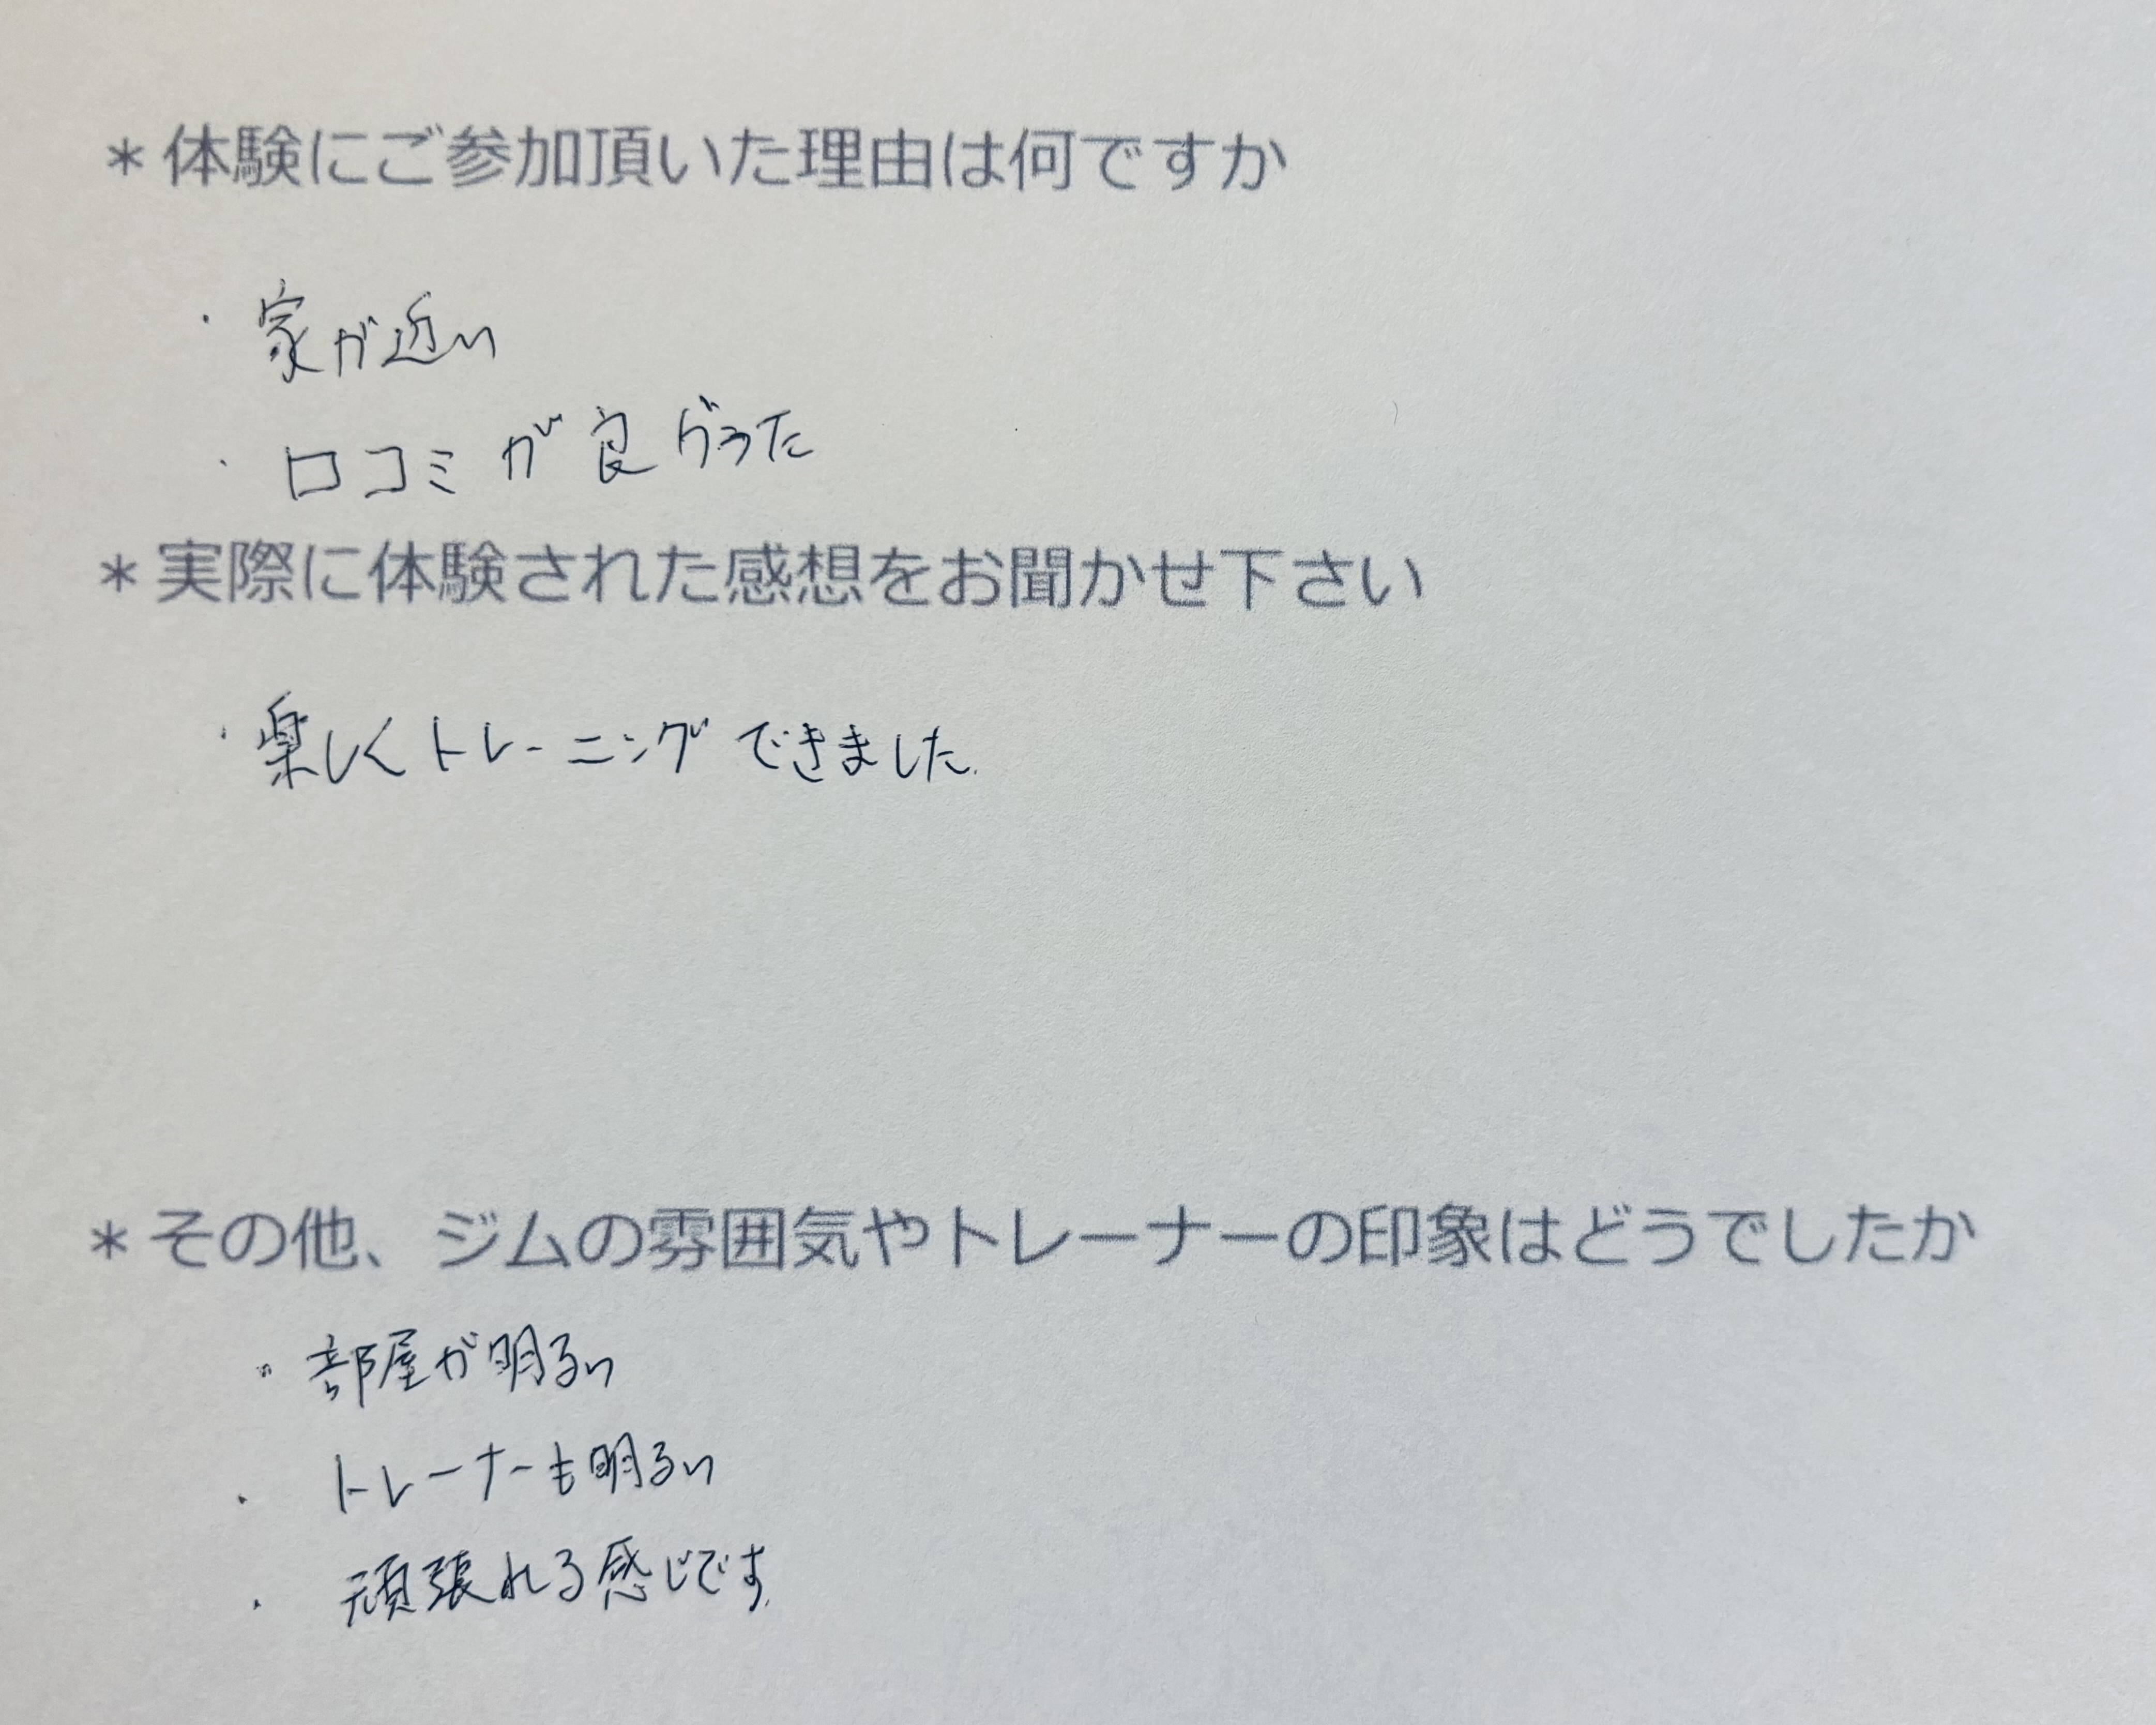 *体験にご参加頂いた理由は何ですか
・家が近い
・口コミが良がった
*実際に体験された感想をお聞かせ下さい
・楽しくトレーニングできました.
*その他、ジムの雰囲気やトレーナーの印象はどうでしたか
・部屋が明るい
・トレーナーも明るい
・頑張れる感じです.